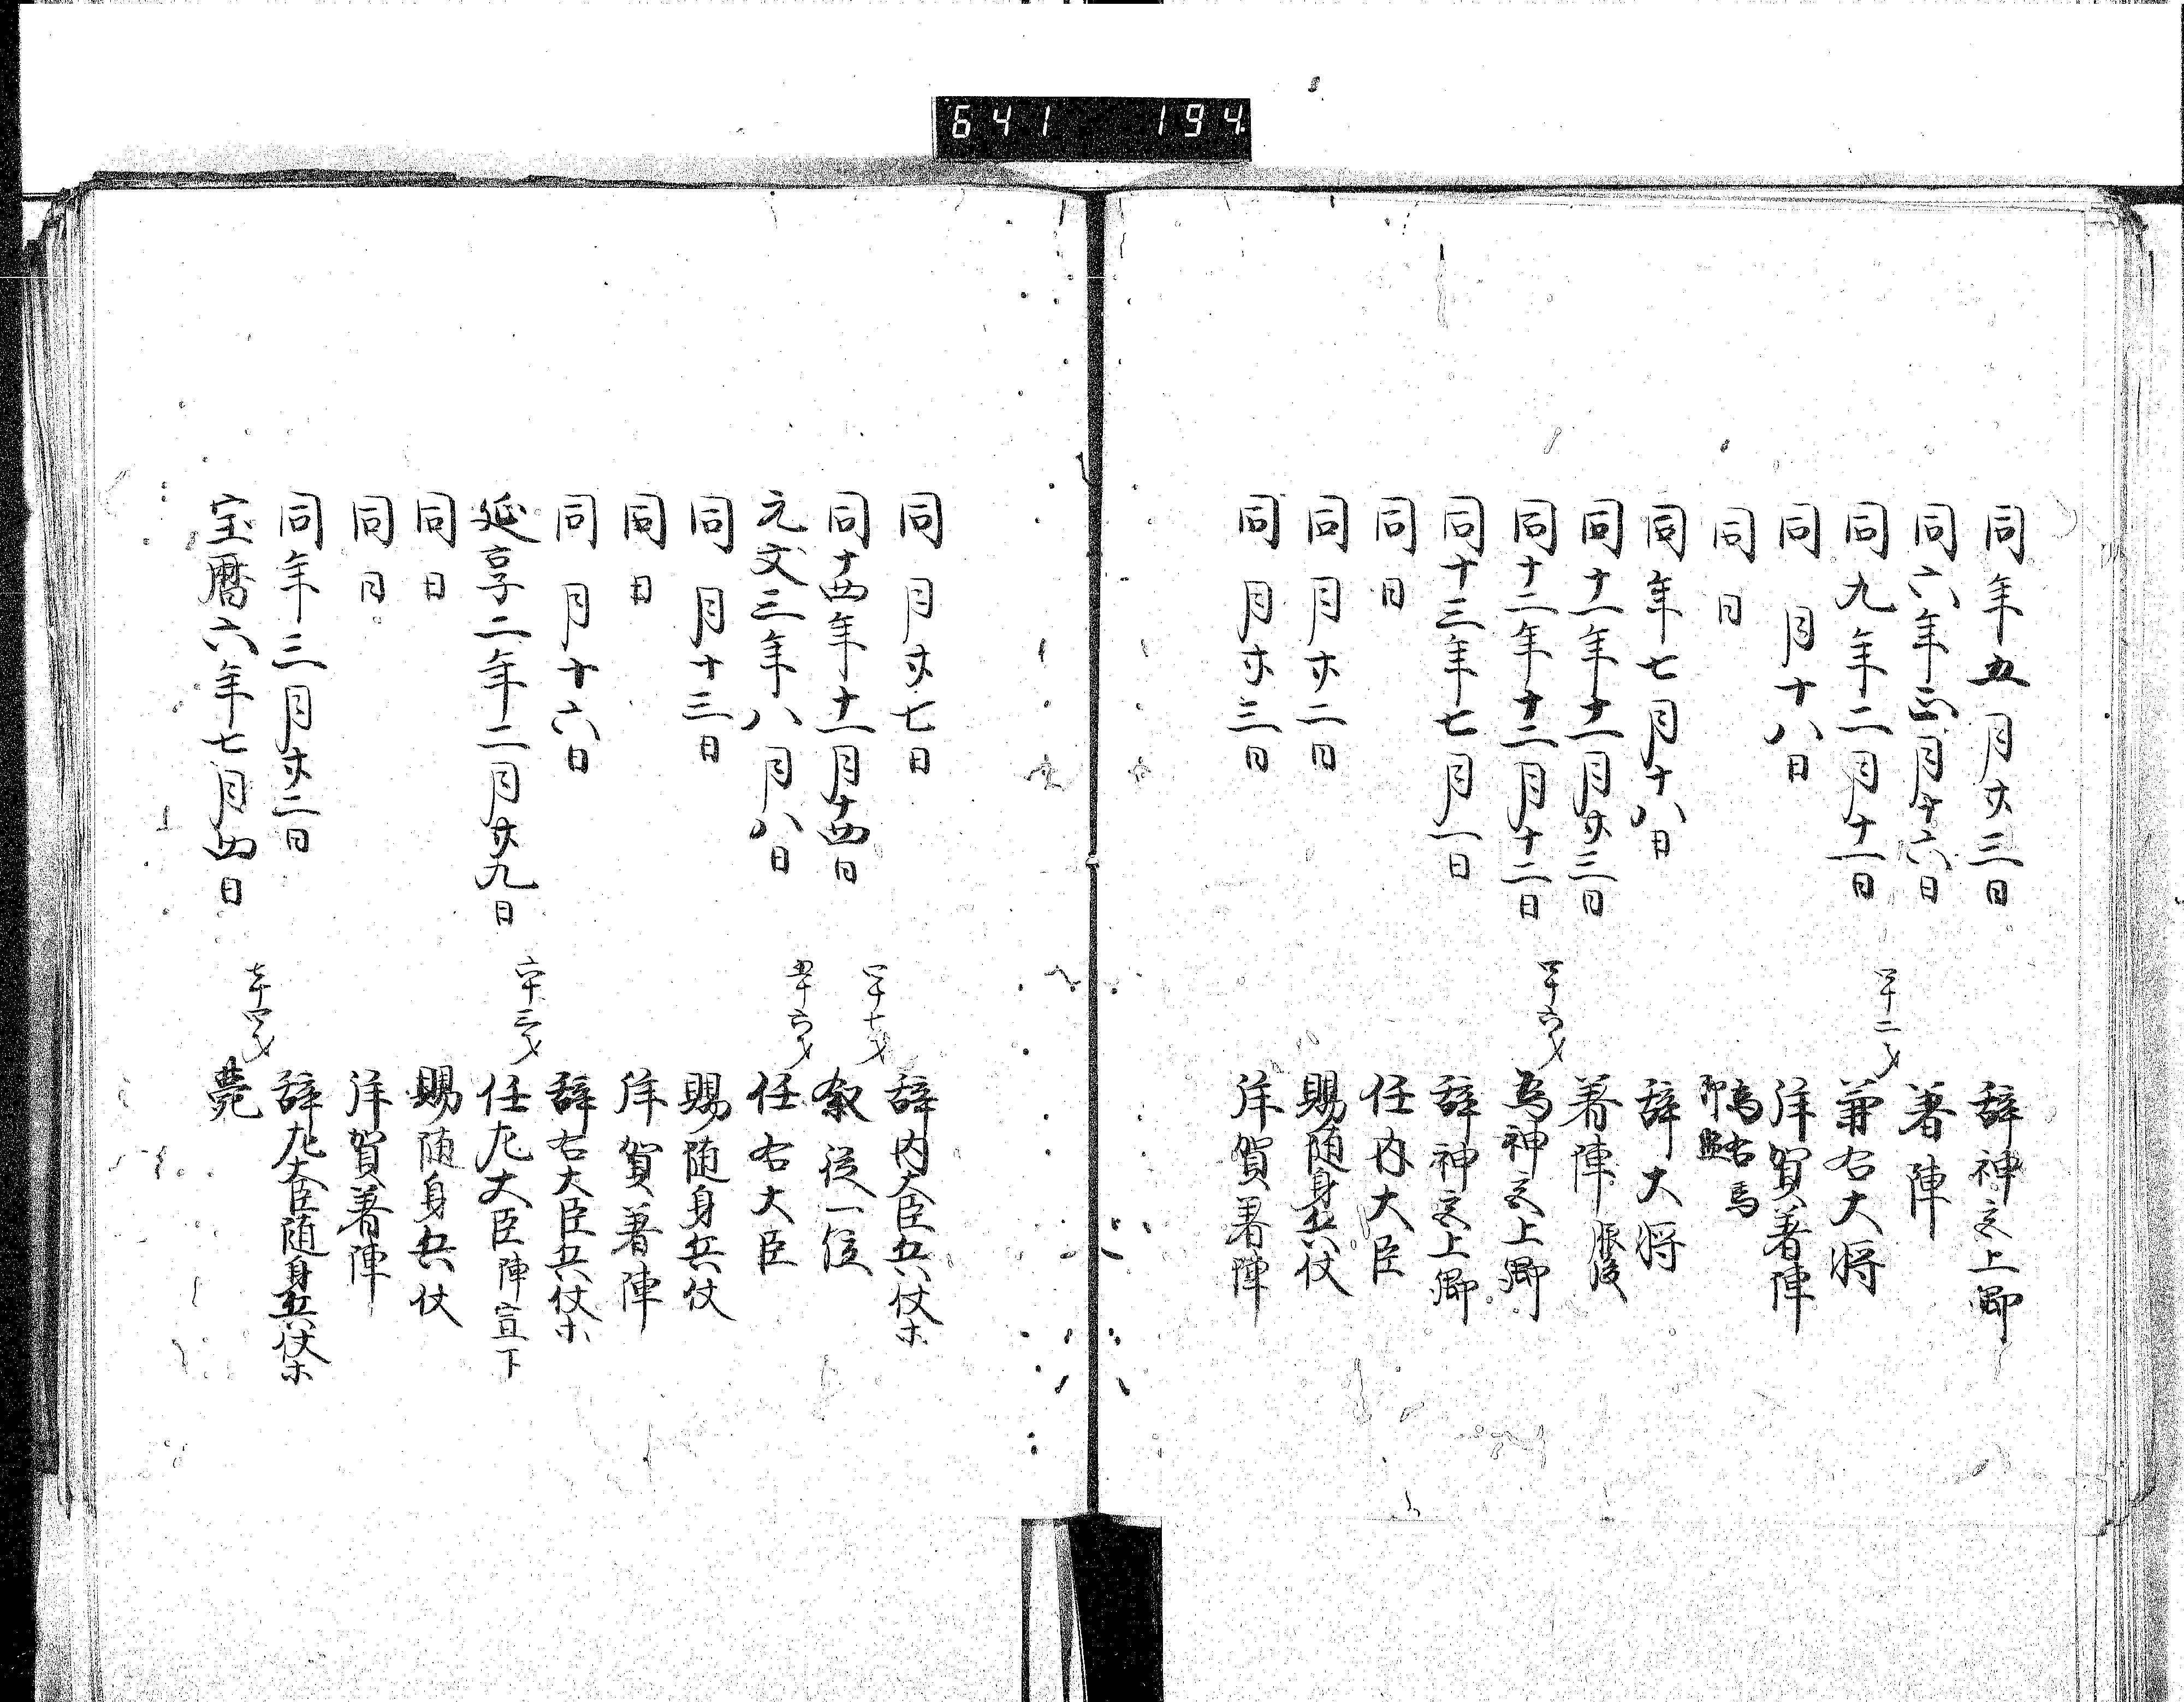 641 194
同年五月廿三日 辞神宮上卿
同六年正月十六日 著陣
同九年二月十一日 四十二才 兼右大将
同月十八日 拝賀著陣
同日 為右馬
同年七月十八日 辞大将
同十一年十一月廿三日 著陣 服後
同十二年十二月十二日 四十六才 為神宮上卿
同十三年七月一日 辞神宮上卿
同日 任内大臣
同月廿二日 賜随身兵仗
同月廿三日 拝賀著陣
同月廿七日 辞内大臣兵仗木
同十四年十一月十四日 四十七才 叙従一位
元文三年八月八日 五十六才 任右大臣
同月十三日 賜随身兵仗
同日 拝賀著陣
同月十六日 辞右大臣兵仗木
延享二年二月廿九日 六十三才 任左大臣 陣宣下
同日 賜随身兵仗
同日 拝賀著陣
同年三月廿二日 辞左大臣随身兵仗木
宝暦六年七月四日 七十四才 薨